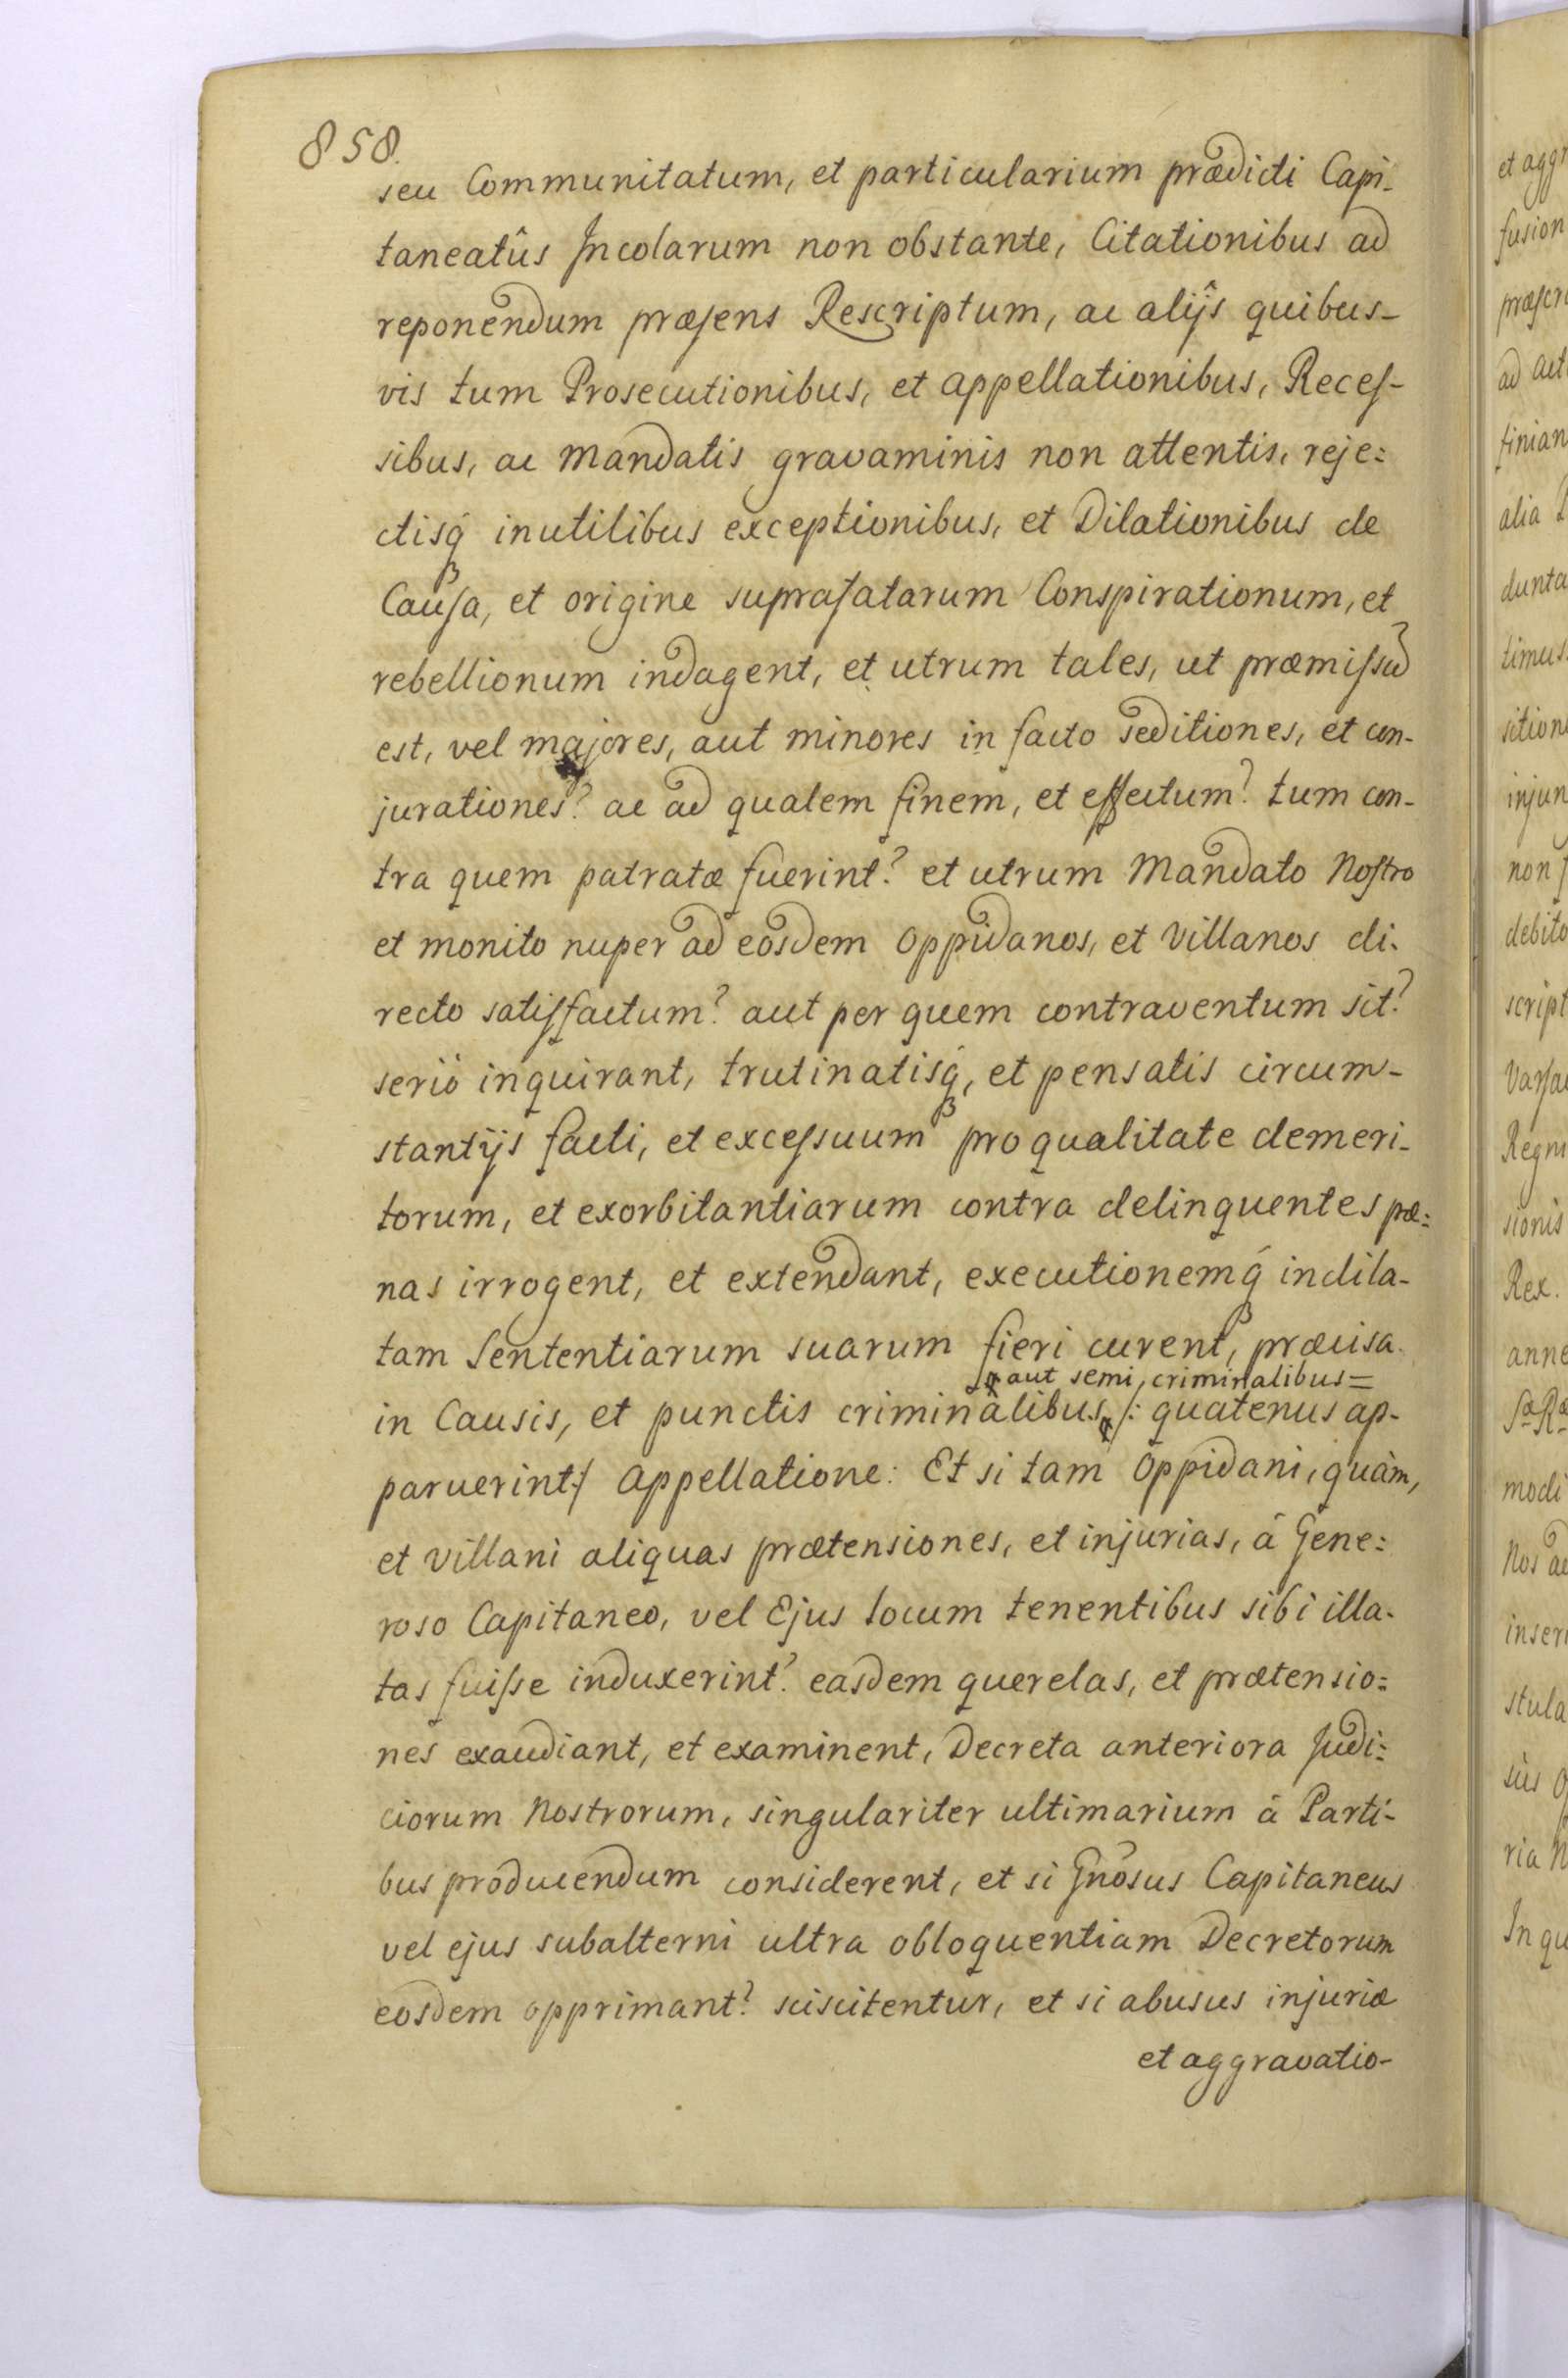 858.
seu Communitatum, et particularium prædicti Capi-
taneatûs Incolarum non obstante, Citationibus ad
reponendum præsens Rescriptum, ac alijs quibus-
vis tum Prosecutionibus, et appellationibus, Reces-
sibus, ac Mandatis gravaminis non attentis, reje:
ctisq́ inutilibus exceptionibus, et Dilationibus de
Causa, et origine suprafatarum Conspirationum, et
rebellionum indagent, et utrum tales, ut præmissũ
est, vel majores, aut minores in facto seditiones, et con-
jurationes? ac ad qualem finem, et effectum? tum con-
tra quem patratæ fuerint? et utrum Mandato Nostro
et monito nuper ad eosdem Oppidanos, et Villanos di-
recto satisfactum? aut per quem contraventum sit?
seriò inquirant, trutinatisq́, et pensatis circum-
stantijs facti, et excessuum pro qualitate demeri-
torum, et exorbitantiarum contra delinquentes pæ:
nas irrogent, et extendant, executionemq́ indila-
tam Sententiarum suarum fieri curent, præcisa
aut semi, criminalibus=
in Causis, et punctis criminalibus /: quatenus ap-
paruerint:/ Appellatione: Et si tam Oppidani, quàm,
et Villani aliquas prætensiones, et injurias, à Gene:
roso Capitaneo, vel Ejus locum tenentibus sibi illa-
tas fuisse induxerint? easdem querelas, et prætensio:
nes exaudiant, et examinent, Decreta anteriora Judi:
ciorum Nostrorum, singulariter ultimarium à Parti-
bus producendum considerent, et si Gnõsus Capitaneus
vel ejus subalterni ultra obloquentiam Decretorum
eosdem opprimant? sciscitentur, et si abusus injuriæ
et aggravatio-
et aggr
fusion
ad act
finian
alia
dunta
timus
sition
injun
non
debito
script
Regni
sionis
Rex.
anne
modi
Nos
inser
stula
ria
In qu